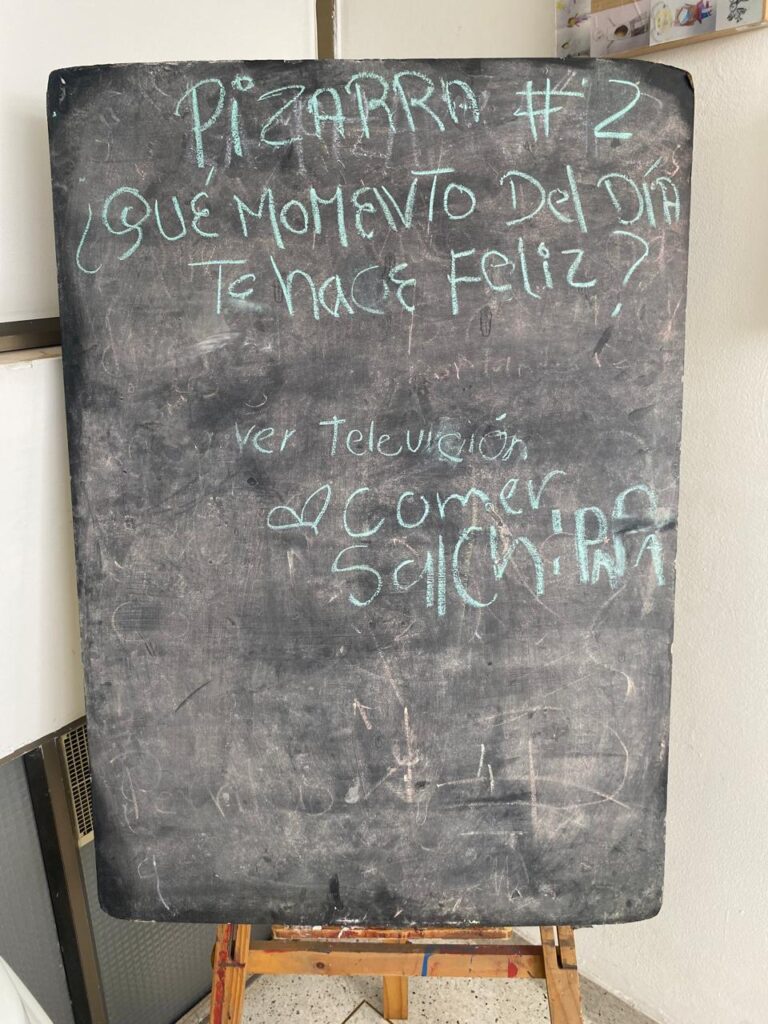 PIZARRA #2
¿QUÉ MOMENTO Del DÍA
Te hace Feliz?
ver Televición
comer
SalChiPAPA